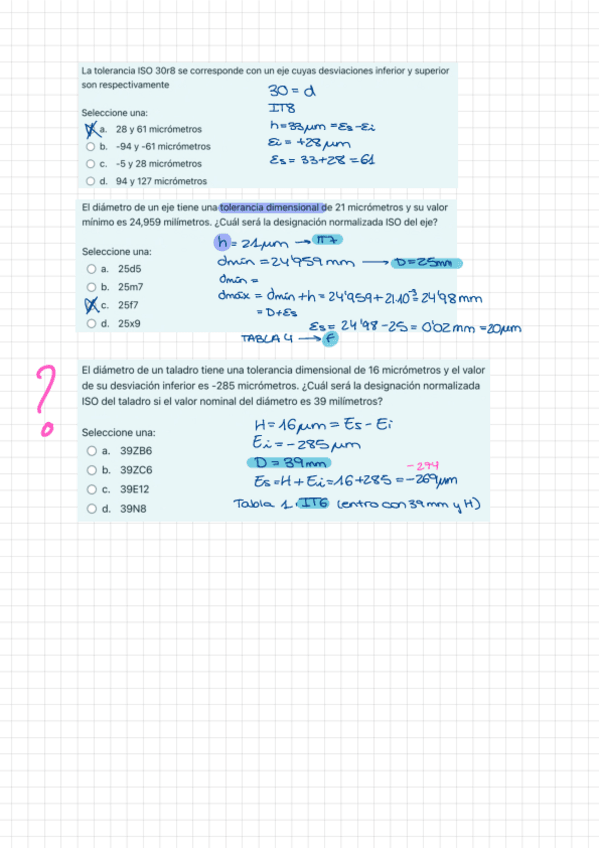 La tolerancia ISO 30r8 se corresponde con un eje cuyas desviaciones inferior y superior
son respectivamente
30 = d
IT8
Seleccione una:
h=33µm = Es-Ei
a. 28 y 61 micrómetros
Ei = +28µm
b. -94 y -61 micrómetros
Es = 33+28 = 61
c. -5 y 28 micrómetros
d. 94 y 127 micrómetros
El diámetro de un eje tiene una tolerancia dimensional de 21 micrómetros y su valor
mínimo es 24,959 milímetros. ¿Cuál será la designación normalizada ISO del eje?
h = 21µm → IT7
Seleccione una:
dmín = 24'959 mm → D=25mm
a. 25d5
dmín =
b. 25m7
dmáx = dmín + h = 24'959 + 21·10⁻³ = 24'98 mm
c. 25f7
= D+Es
d. 25x9
Es = 24'98 - 25 = 0'02 mm = 20µm
TABLA 4 → F
?
El diámetro de un taladro tiene una tolerancia dimensional de 16 micrómetros y el valor
de su desviación inferior es -285 micrómetros. ¿Cuál será la designación normalizada
ISO del taladro si el valor nominal del diámetro es 39 milímetros?
H = 16µm = Es - Ei
Seleccione una:
Ei = -285µm
a. 39ZB6
D = 39mm
-274
b. 39ZC6
Es = H + Ei = 16+285 = -269µm
c. 39E12
Tabla 1. IT6 (entro con 39mm y H)
d. 39N8